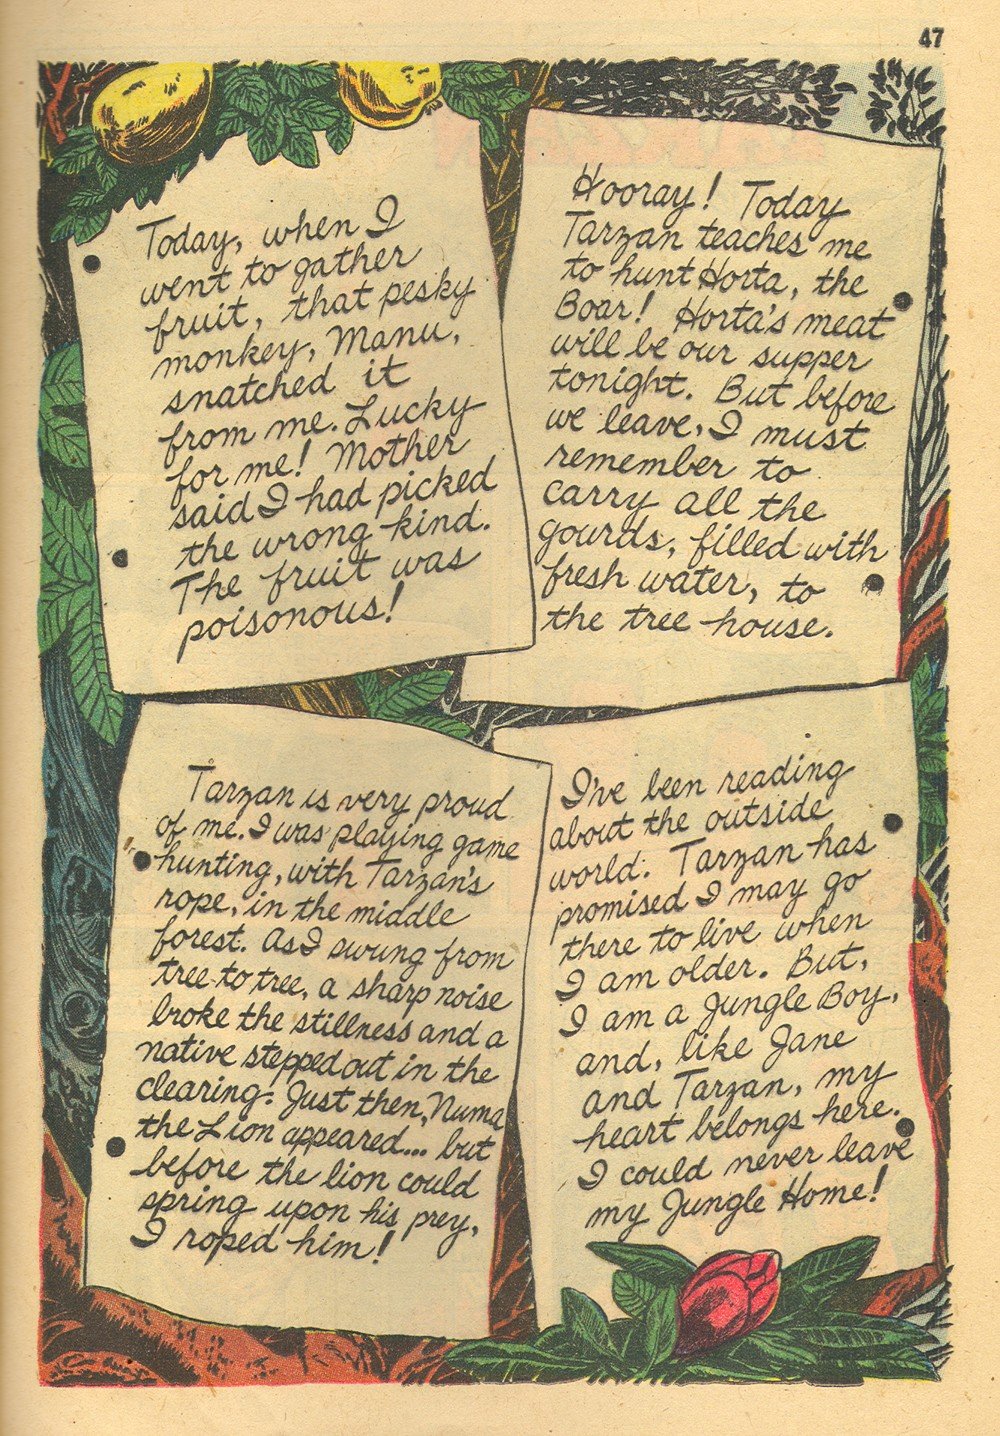 47
Today, when I
went to gather
fruit, that pesky
monkey, Manu,
snatched it
from me. Lucky
for me! Mother
said I had picked
the wrong kind.
The fruit was
poisonous!
Hooray! Today
Tarzan teaches me
to hunt Horta, the
Boar! Horta's meat
will be our supper
tonight. But before
we leave, I must
remember to
carry all the
gourds, filled with
fresh water, to
the tree house.
Tarzan is very proud
of me. I was playing game
hunting, with Tarzan's
rope, in the middle
forest. As I swung from
tree to tree, a sharp noise
broke the stillness and a
native stepped out in the
clearing. Just then, Numa
the Lion appeared... but
before the lion could
spring upon his prey,
I roped him!
I've been reading
about the outside
world. Tarzan has
promised I may go
there to live when
I am older. But,
I am a Jungle Boy,
and, like Jane
and Tarzan, my
heart belongs here.
I could never leave
my Jungle Home!